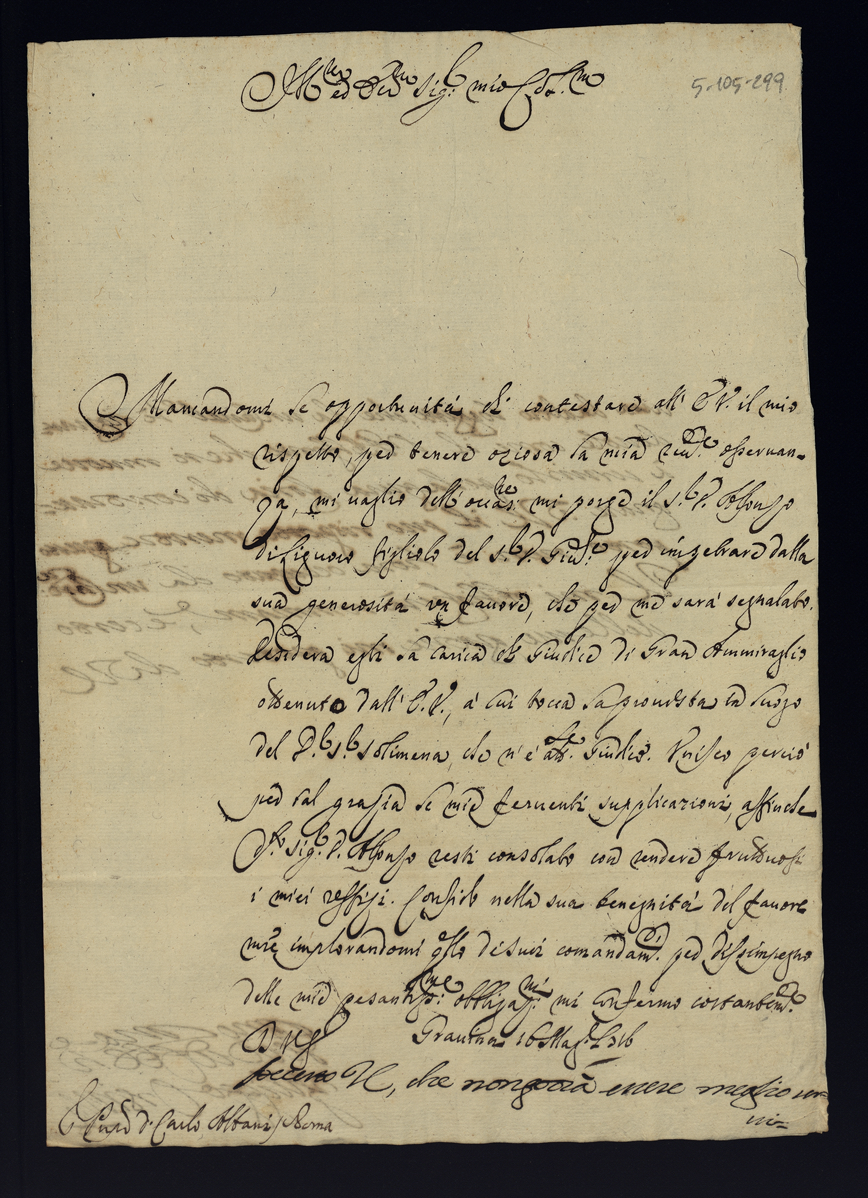 5-105-299
Ill.mo ed Ecc.mo Sig.r mio Oss.mo
Mancandomi le opportunità di contestare all' E.V. il mio
rispetto, per tenere oziosa la mia river.te osservan-
za, mi vaglio dell' occas.ne mi porge il S.r D. Alfonso
di Liguoro figliolo del S.r D. Gius.e per impetrare dalla
sua generosità un favore, che per me sarà segnalato.
Desidera egli la carica di Giudice di Grand Ammiraglio
ottenuto dall' E.V., a cui tocca la provista in luogo
del S.r Solimena, che n'è Giudice. Unisco perciò
per tal grazia le mie ferventi supplicazioni, affinche
d.to Sig.r D. Alfonso resti consolato con rendere fruttuosi
i miei uffizi. Confido nella sua benegnità del favore
implorandomi q.llo de suoi comandam.ti per dissimpegno
delle mie pesantiss.me obbligaz.ni mi confermo costantem.te
D V E Gravina 16 Mag.o 1716
V.E, che non potrà essere meglio im=
Sig.r D. Carlo Albani / Roma